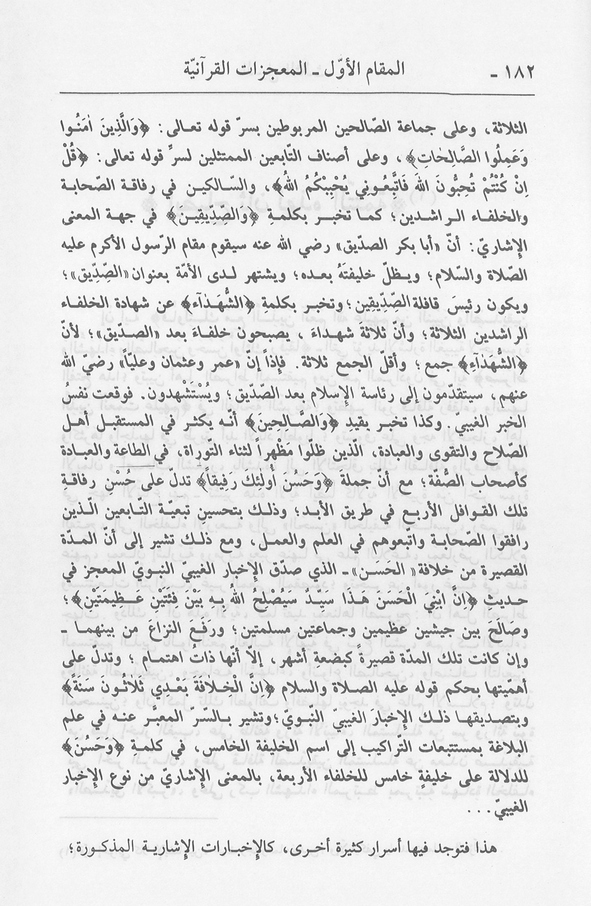 ١٨٢ - المقام الأوّل - المعجزات القرآنيّة
الثلاثة، وعلى جماعة الصّالحين المربوطين بسرّ قوله تعـالى: ﴿وَالَّذِينَ اٰمَنُـوا
وَعَمِلُوا الصَّالِحَاتِ﴾، وعلى أصناف التّابعين الممتثلين لسرِّ قوله تعالى: ﴿قُلْ
اِنْ كُنْتُمْ تُحِبُّونَ اللهَ فَاتَّبِعُونِي يُحْبِبْكُمُ اللهُ﴾، والسّالكيـن في رفاقة الصّحابة
والخلفـاء الـراشديـن؛ كمـا تخبـر بكلمةِ ﴿وَالصِّدِّيقِيـنَ﴾ في جهـة المعنى
الإشاريّ: أنّ «أبا بكر الصدّيق» رضي الله عنه سيقوم مقام الرّسول الأكرم عليه
الصّلاة والسّلام؛ ويظـلّ خليفتَهُ بعـده؛ ويشتهر لـدى الأمّـة بعنوان «الصِّدِّيق»؛
ويكون رئيسَ قافلة الصِّدِّيقِين؛ وتخبـر بكلمةِ ﴿الشُّهَـدَاۤءِ﴾ عن شهادة الخلفـاء
الراشدين الثلاثة؛ وأنّ ثلاثةَ شهـداءَ، يصبحون خلفـاءَ بعد «الصدّيق»؛ لأنّ
﴿الشُّهَدَاۤءِ﴾ جمع؛ وأقلّ الجمع ثلاثة. فإذاً إنّ «عمر وعثمان وعليّاً» رضيّ الله
عنهم، سيتقدّمون إلى رئاسة الإسلام بعد الصدّيق؛ ويُسْتَشْهدون. فوقعت نفسُ
الخبر الغيبيّ. وكذا تخبر بقيدِ ﴿وَالصَّـالِحِينَ﴾ أنّـه يكثـر في المستقبـل أهـل
الصّلاح والتقوى والعبادة، الّذين ظلّوا مَظْهراً لثناء التّوراة، في الطاعة والعبادة
كأصحاب الصُّفّة؛ مع أنّ جملةَ ﴿وَحَسُنَ أُولٰئِكَ رَفِيقاً﴾ تدلّ على حُسْنِ رفاقة
تلك القوافل الأربع في طريق الأبد؛ وذلك بتحسيـن تبعيّـة التّابعيـن الّـذين
رافقوا الصّحابـة واتّبعوهم في العلم والعمـل، ومع ذلـك تشير إلى أنّ المـدّة
القصيرة من خلافـة «الحَسَـن» ـ الذي صدّق الإخبار الغيبيّ النبويّ المعجز في
حديثِ ﴿اِنَّ ابْنِيَ الْحَسَنَ هَـذَا سَيِّـدٌ سَيُصْلِحُ اللهُ بِـهِ بَيْنَ فِئَتَيْنِ عَظِيمَتَيْنِ﴾؛
وصَالَحَ بين جيشين عظيمين وجماعتين مسلمتين؛ ورفَـعَ النزاعَ من بينهمـا ـ
وإن كانت تلك المدّة قصيرةً كبضعةِ أشهر، إلاّ أنّها ذاتُ اهتمـام؛ وتدلّ على
أهمّيتها بحكم قوله عليه الصـلاة والسلام ﴿اِنَّ الْخِـلاَفَةَ بَعْـدِي ثَلاَثُـونَ سَنَةً﴾
وبتصـديقهـا ذلـك الإخبـارَ الغيبيّ النّبـويّ؛ وتشير بالسـرّ المعبَّـر عنـه في علم
البلاغة بمستتبعات التّراكيب إلى اسم الخليفة الخامس، في كلمـة ﴿وَحَسُنَ﴾
للدلالة على خليفةٍ خامس للخلفاء الأربعة، بالمعنى الإشاريّ من نوع الإخبار
الغيبيّ...
هذا فتوجد فيها أسرار كثيرة أخـرى، كالإخبـارات الإشاريـة المذكـورة؛